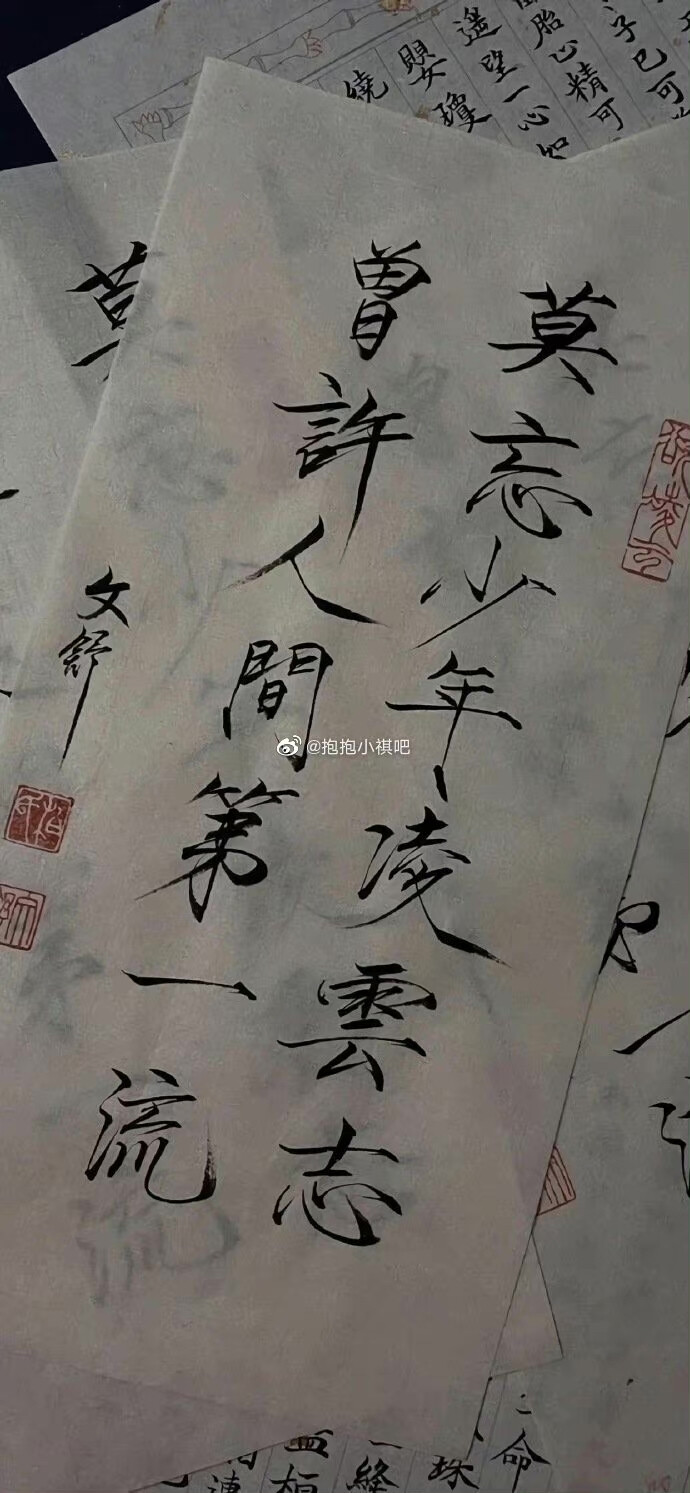 莫忘少年凌雲志
曾許人間第一流
文舒
@抱抱小祺吧
莫
繞
嬰瓊
遥望一心知
胎心精可
子已可
命
珠
一絳